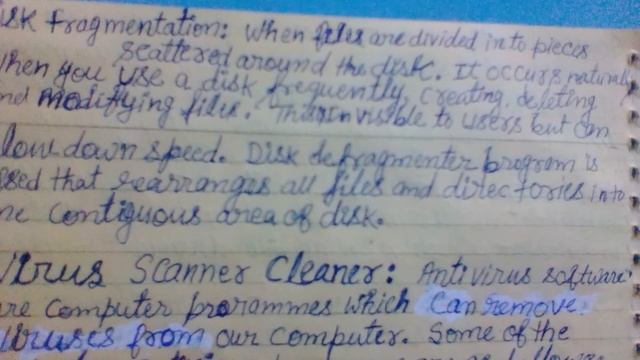 isk fragmentation: when files are divided into pieces
scattered around the disk. It occurs naturally
when you use a disk frequently, creating, deleting
nd modifying files. This invisible to users but can
low down speed. Disk defragmenter program is
sed that rearranges all files and directories into
ne contiguous area of disk.
Virus Scanner Cleaner: Antivirus software
re computer programmes which can remove
viruses from our computer. Some of the